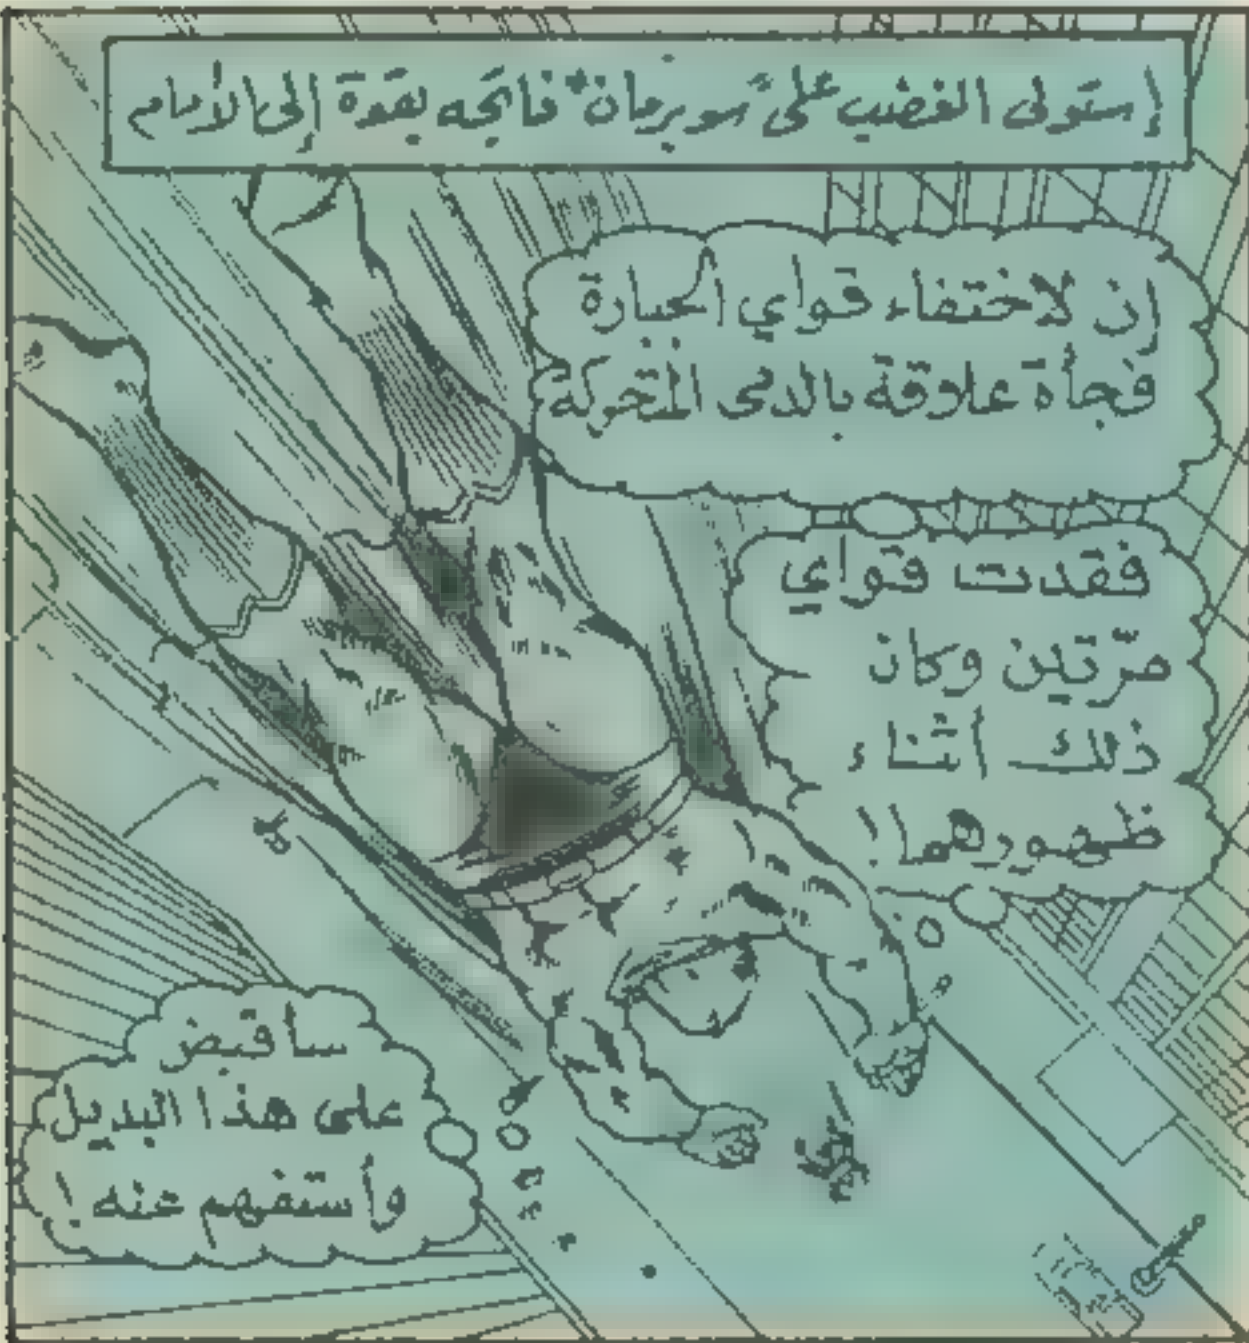 إستولى الغضب على "سوبرمان" فاتجه بقوة إلى الأمام
إن لاختفاء قواي الجبارة
فجأة علاقة بالدمى المتحركة
فقدت قواي
مرّتين وكان
ذلك أثناء
ظهورهما!
سأقبض
على هذا البديل
وأستفهم عنه!